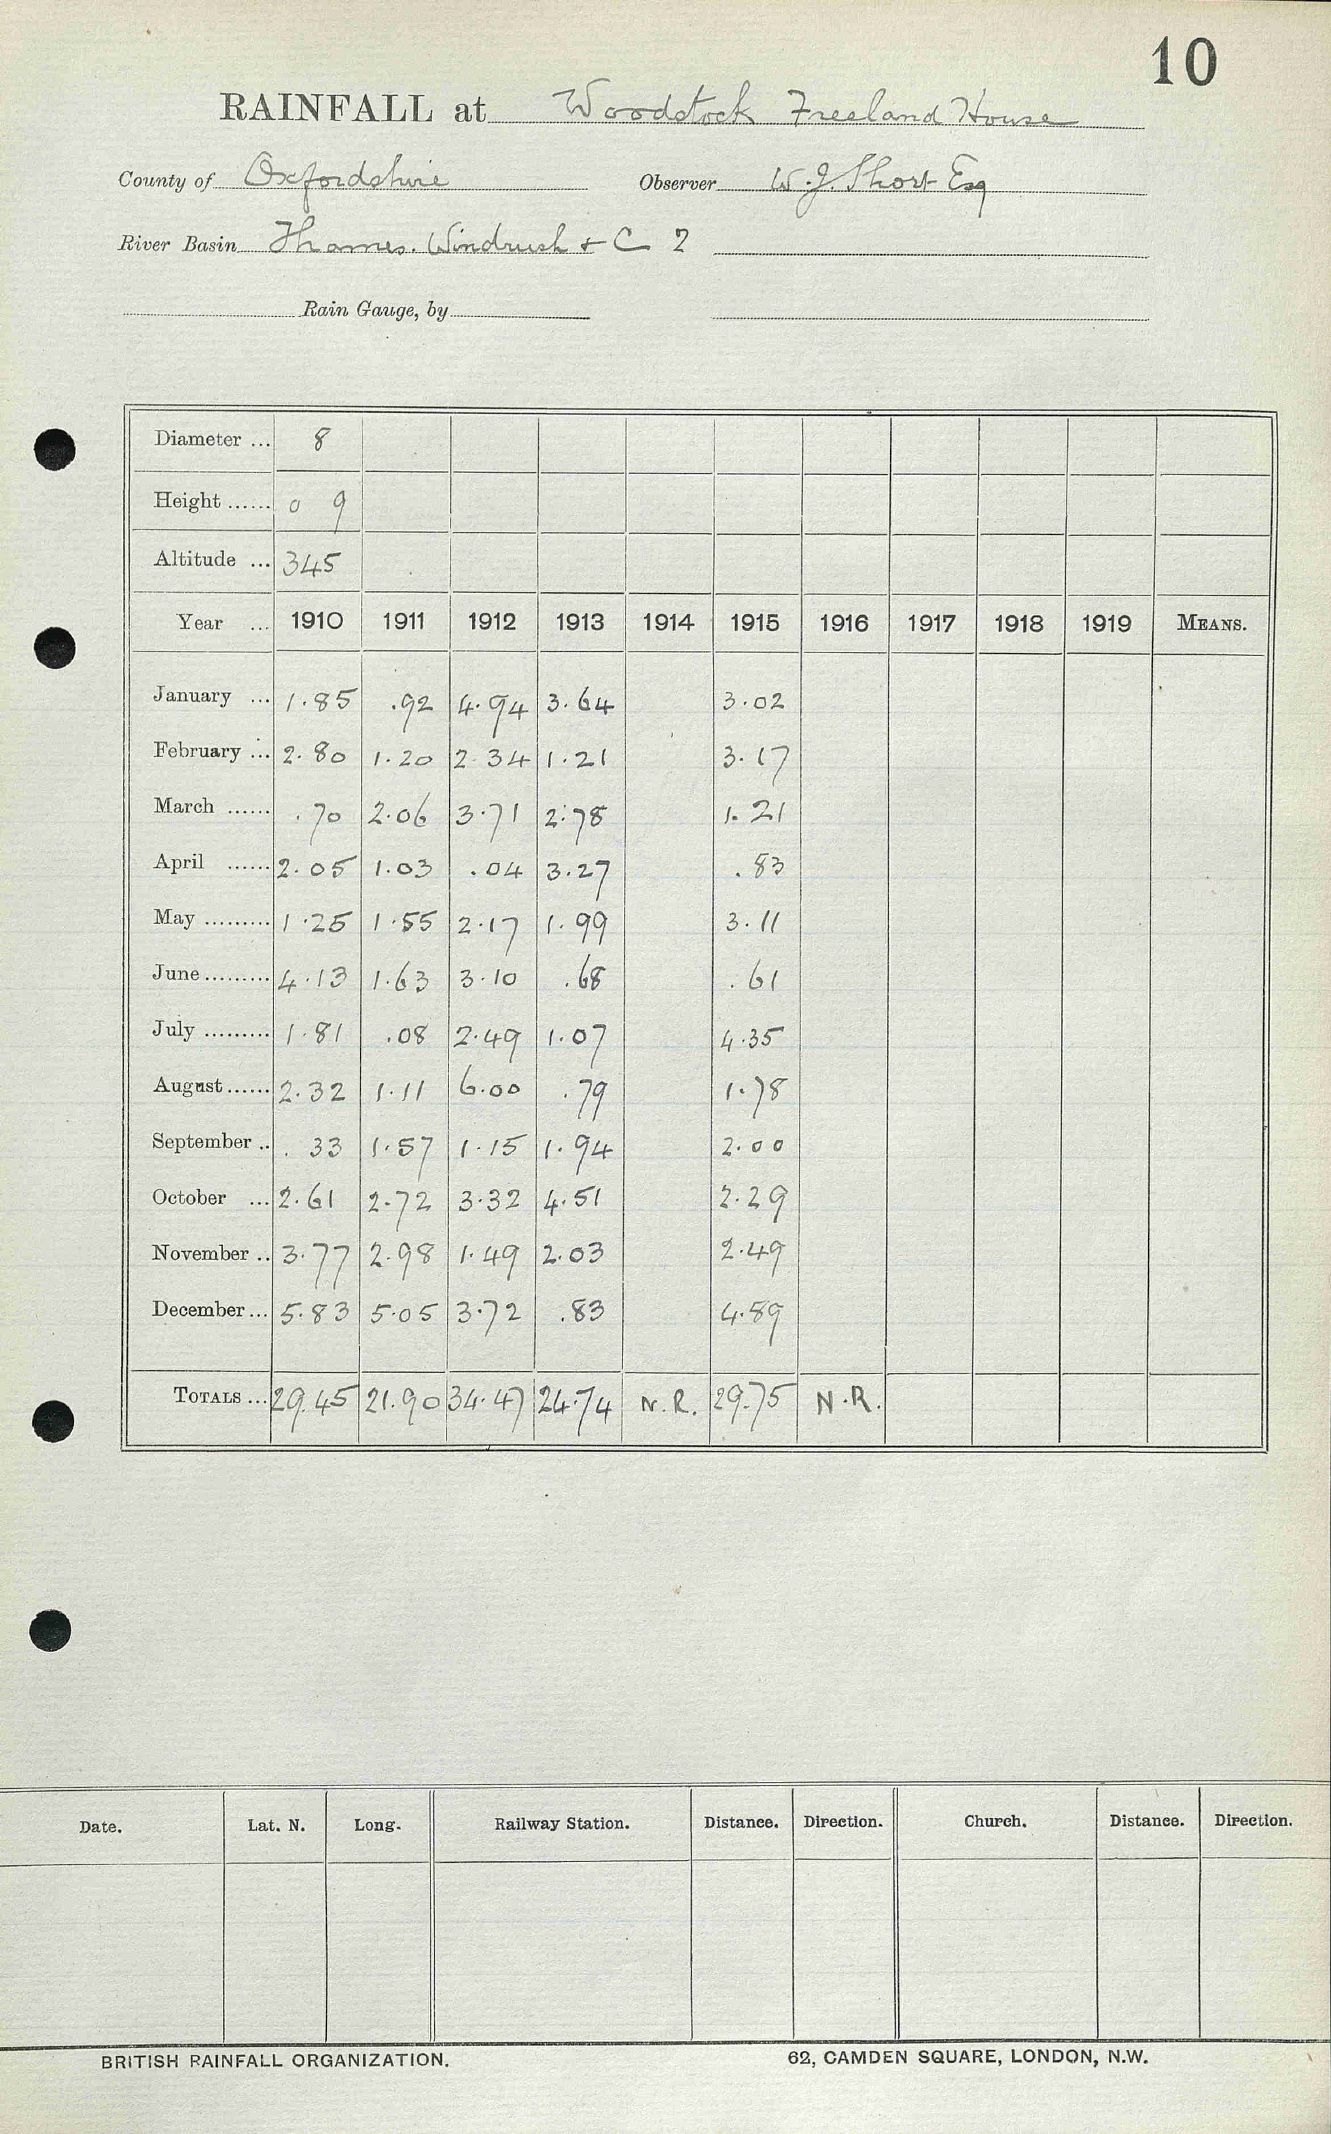 10
RAINFALL at Woodstock Freeland House
County of Oxfordshire Observer W. J. Short Esq
River Basin Thames. Windrush + C 2
Rain Gauge, by
Diameter ... 8
Height ...... 0 9
Altitude ... 345
Year ... 1910 1911 1912 1913 1914 1915 1916 1917 1918 1919 MEANS.
January ... 1.85 .92 4.94 3.64 3.02
February ... 2.80 1.20 2.34 1.21 3.17
March ...... .70 2.06 3.71 2.78 1.21
April ...... 2.05 1.03 .04 3.27 .83
May ......... 1.25 1.55 2.17 1.99 3.11
June ......... 4.13 1.63 3.10 .68 .61
July ......... 1.81 .08 2.49 1.07 4.35
August ...... 2.32 1.11 6.00 .79 1.78
September .. .33 1.57 1.15 1.94 2.00
October ... 2.61 2.72 3.32 4.51 2.29
November .. 3.77 2.98 1.49 2.03 2.49
December ... 5.83 5.05 3.72 .83 4.89
TOTALS ... 29.45 21.90 34.47 24.74 N.R. 29.75 N.R.
Date. Lat. N. Long. Railway Station. Distance. Direction. Church. Distance. Direction.
BRITISH RAINFALL ORGANIZATION. 62, CAMDEN SQUARE, LONDON, N.W.